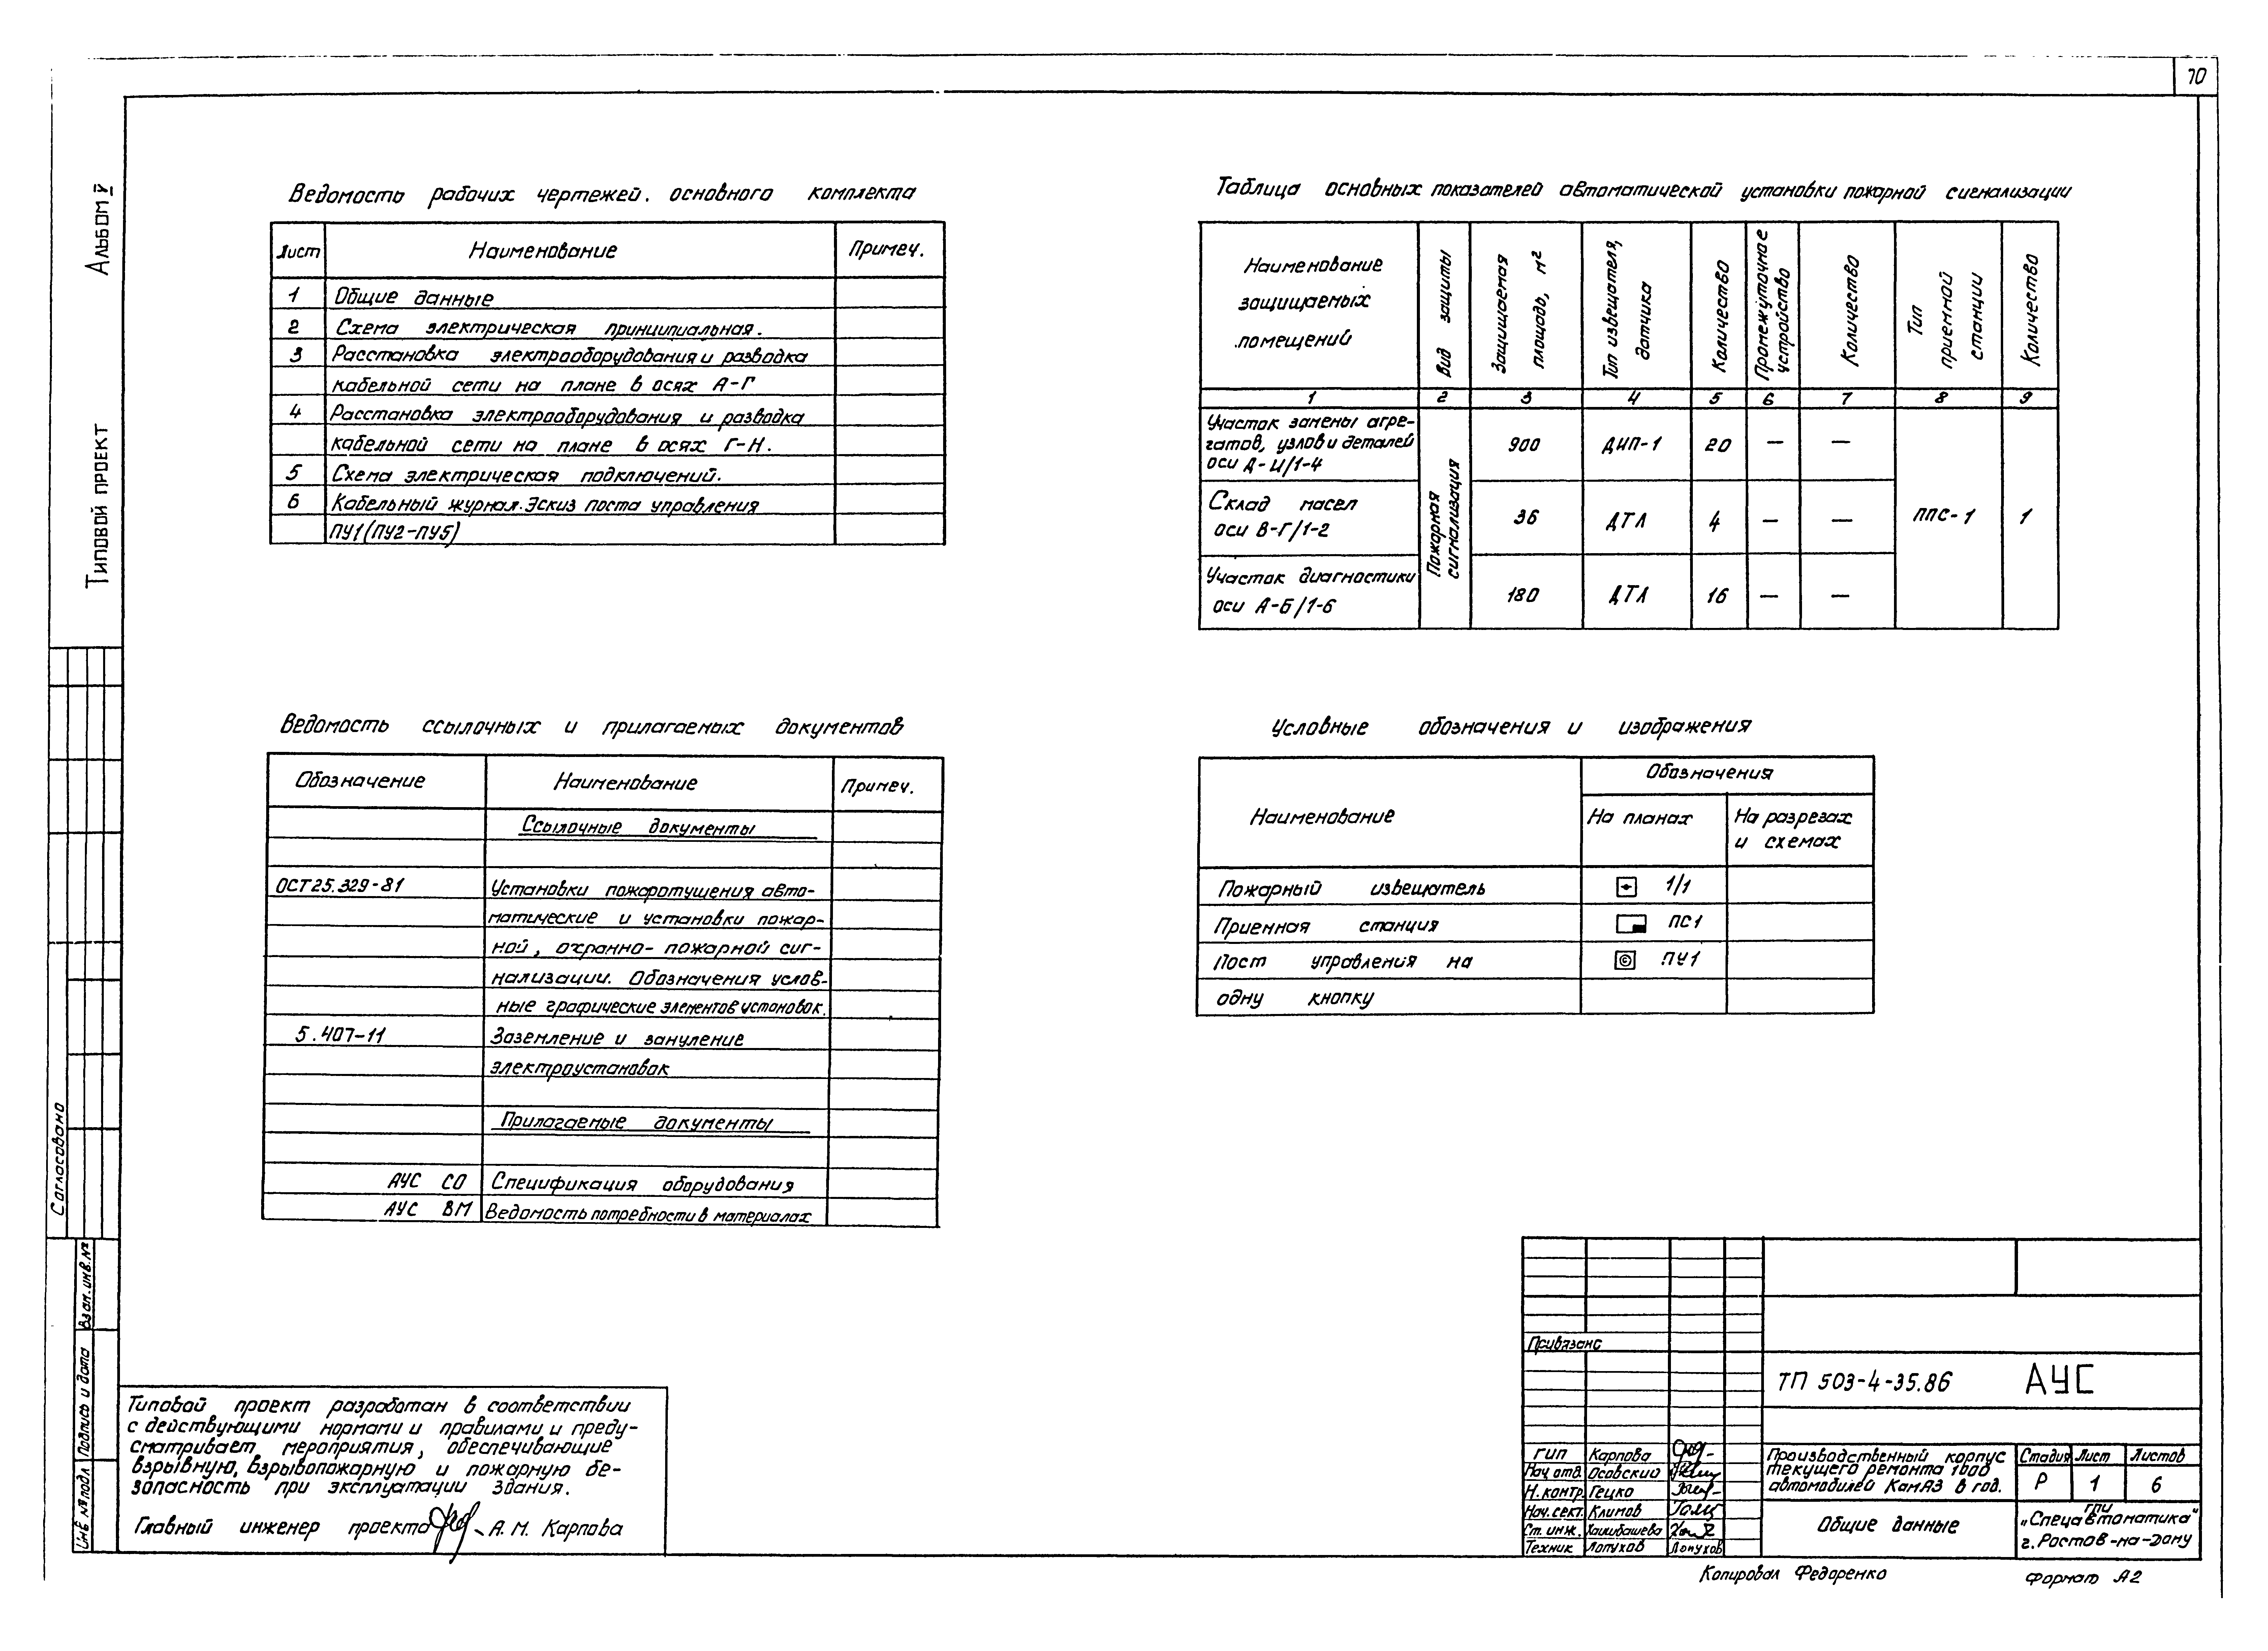 10
Альбом V
Типовой проект
Согласовано
Взам. инв. №
Подпись и дата
Инв № подл
Ведомость рабочих чертежей. основного комплекта
Лист Наименование Примеч.
1 Общие данные
2 Схема электрическая принципиальная.
3 Расстановка электрооборудования и разводка
кабельной сети на плане в осях А-Г
4 Расстановка электрооборудования и разводка
кабельной сети на плане в осях Г-Н.
5 Схема электрическая подключений.
6 Кабельный журнал. Эскиз поста управления
ПУ1 (ПУ2-ПУ5)
Таблица основных показателей автоматической установки пожарной сигнализации
Наименование
защищаемых
помещений
Вид защиты
Защищаемая
площадь, м²
Тип извещателя,
датчика
Количество
Промежуточное
устройство
Количество
Тип
приемной
станции
Количество
1 2 3 4 5 6 7 8 9
Участок замены агре-
гатов, узлов и деталей
оси Д-И/1-4
900 ДИП-1 20 — —
Пожарная
сигнализация
Склад масел
оси В-Г/1-2
36 ДТЛ 4 — — ППС-1 1
Участок диагностики
оси А-Б/1-6
180 ДТЛ 16 — —
Ведомость ссылочных и прилагаемых документов
Обозначение Наименование Примеч.
Ссылочные документы
ОСТ 25.329-81 Установки пожаротушения авто-
матические и установки пожар-
ной, охранно- пожарной сиг-
нализации. Обозначения услов-
ные графические элементов установок.
5.407-11 Заземление и зануление
электроустановок
Прилагаемые документы
АУС СО Спецификация оборудования
АУС ВМ Ведомость потребности в материалах
Условные обозначения и изображения
Наименование
Обозначения
На планах На разрезах
и схемах
Пожарный извещатель 1/1
Приемная станция ПС1
Пост управления на ПУ1
одну кнопку
Типовой проект разработан в соответствии
с действующими нормами и правилами и преду-
сматривает мероприятия, обеспечивающие
взрывную, взрывопожарную и пожарную бе-
зопасность при эксплуатации здания.
Главный инженер проекта А.М. Карпова
Привязано
ТП 503-4-35.86 АУС
ГИП Карпова
Нач. отд. Осовский
Н. контр. Гецко
Нач. сект. Климов
Ст. инж. Хашибашева
Техник Лопухов Лопухов
Производственный корпус
текущего ремонта 1000
автомобилей КамАЗ в год.
Стадия Лист Листов
Р 1 6
Общие данные
ГПИ
„Спецавтоматика"
г. Ростов-на-Дону
Копировал Федоренко
Формат А2